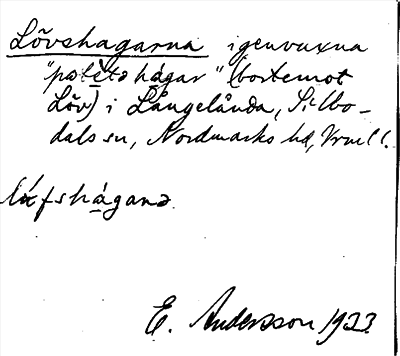 Lövshagarna igenvuxna
"potètə hágar" (bortemot
Löv) i Långelånda, Silbo-
dals sn, Nordmarks hd, Vrml.
lǿfshágana
E. Andersson 1933